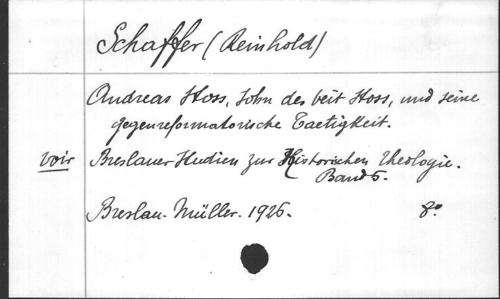 Schaffer (Reinhold)
Andreas Stoss, Sohn des Veit Stoss, und seine
gegenreformatorische Taetigkeit.
voir Breslauer Studien zur Historischen Theologie.
Band 5.
Breslau. Müller. 1926. 8°